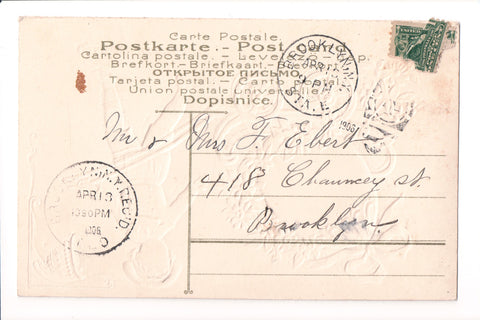 Carte Postale.
Postkarte.- Post
Cartolina postale.- Levelező-
Brefkort.-Briefkaart.-
ОТКРЫТОЕ ПИСЬМО.-
Tarjeta postal.- Carta
Union postale universelle
Dopisnice.
BROOKLYN, N.Y.
APR 1
PM
STA. E
1906
Mr & Mrs F. Ebert
418 Chauncey st.
Brooklyn.
BROOKLYN, N.Y. REC'D.
APR 13
PM
1906